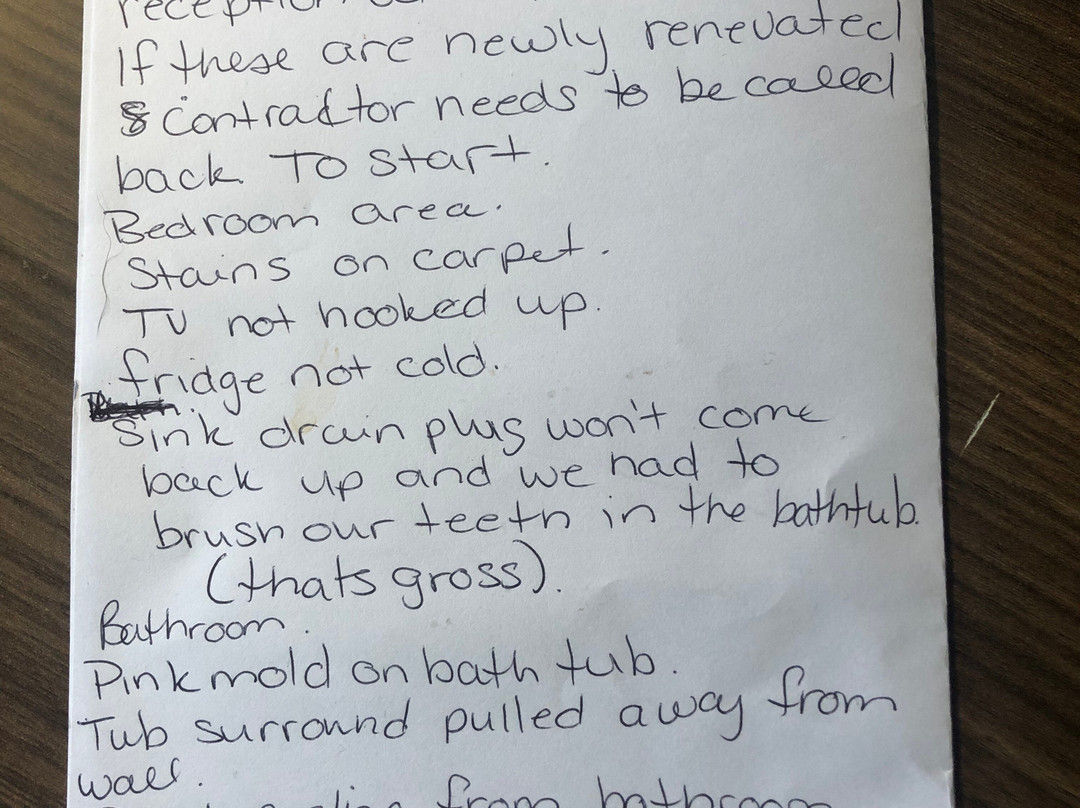 If these are newly renevated
& contractor needs to be called
back To start.
Bedroom area.
Stains on carpet.
TV not hooked up.
fridge not cold.
Sink drain plug won't come
back up and we had to
brush our teeth in the bathtub.
(thats gross).
Bathroom.
Pink mold on bath tub.
Tub surround pulled away from
wall.
from bathroom